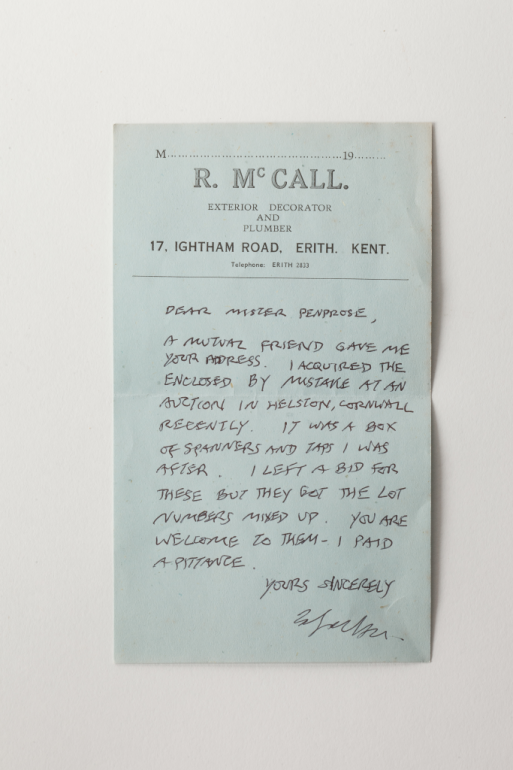 M.............................................19.........
R. Mc CALL.
EXTERIOR DECORATOR
AND
PLUMBER
17, IGHTHAM ROAD, ERITH. KENT.
Telephone: ERITH 3823
DEAR MISTER PENPROSE,
A MUTUAL FRIEND GAVE ME
YOUR ADDRESS. I ACQUIRED THE
ENCLOSED BY MISTAKE AT AN
AUCTION IN HELSTON, CORNWALL
RECENTLY. IT WAS A BOX
OF SPANNERS AND TAPS I WAS
AFTER. I LEFT A BID FOR
THESE BUT THEY GOT THE LOT
NUMBERS MIXED UP. YOU ARE
WELCOME TO THEM - I PAID
A PITTANCE.
YOURS SINCERELY